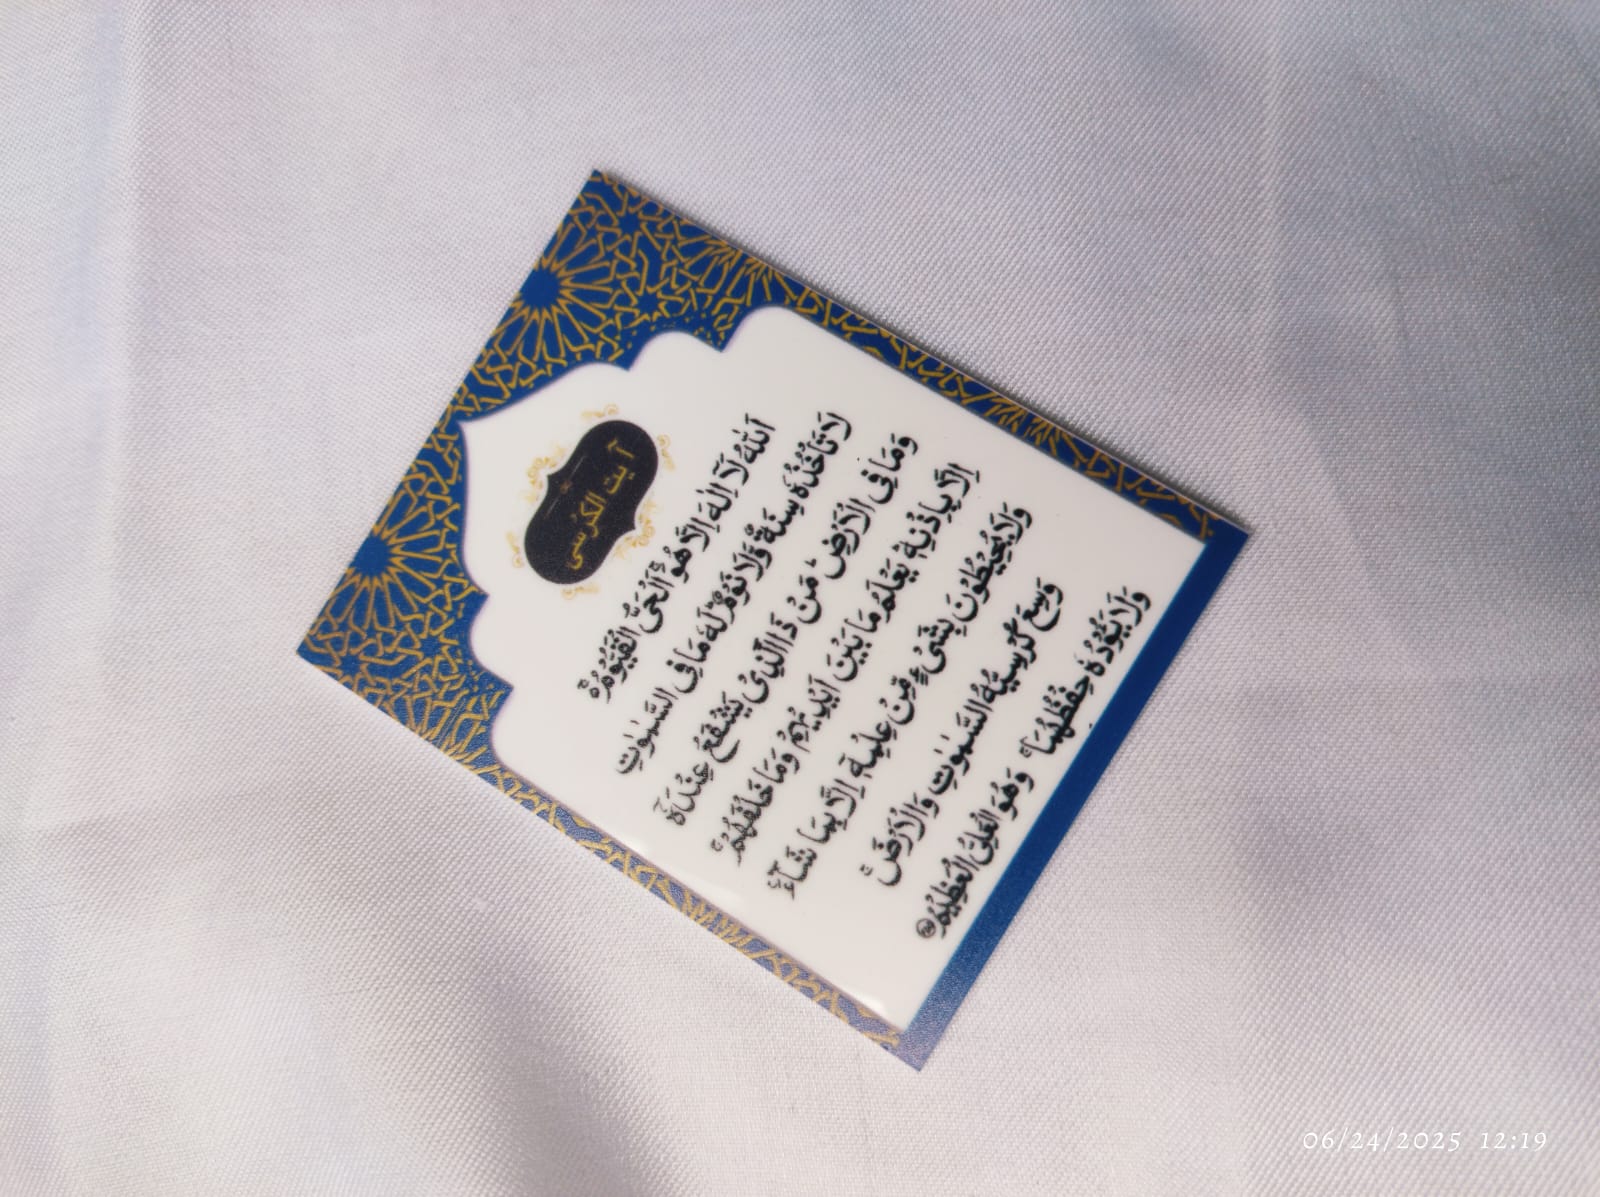 آیت الکرسی
اَللّٰهُ لَاۤ اِلٰهَ اِلَّا هُوَۚ اَلْحَیُّ الْقَیُّوْمُ۬ۚ
لَا تَاْخُذُهٗ سِنَةٌ وَّلَا نَوْمٌؕ لَهٗ مَا فِی السَّمٰوٰتِ
وَمَا فِی الْاَرْضِؕ مَنْ ذَا الَّذِیْ یَشْفَعُ عِنْدَهٗۤ
اِلَّا بِاِذْنِهٖؕ یَعْلَمُ مَا بَیْنَ اَیْدِیْهِمْ وَمَا خَلْفَهُمْۚ
وَلَا یُحِیْطُوْنَ بِشَیْءٍ مِّنْ عِلْمِهٖۤ اِلَّا بِمَا شَآءَۚ
وَسِعَ كُرْسِیُّهُ السَّمٰوٰتِ وَالْاَرْضَۚ
وَلَا یَـُٔوْدُهٗ حِفْظُهُمَاۚ وَهُوَ الْعَلِیُّ الْعَظِیْمُ
06/24/2025 12:19